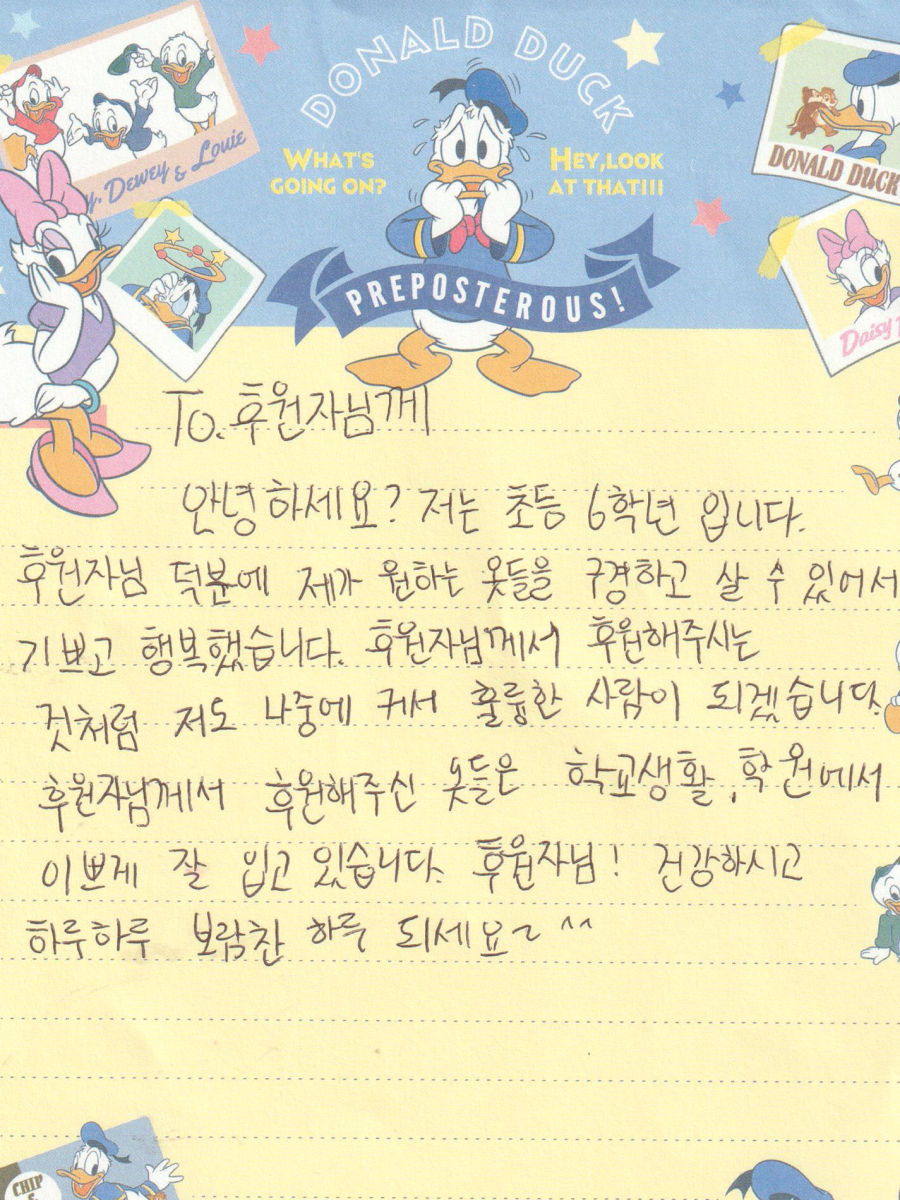 DONALD DUCK
WHAT'S
GOING ON?
HEY, LOOK
AT THAT!!!
Dewey & Louie
DONALD DUCK
PREPOSTEROUS!
Daisy
To. 후원자님께
안녕하세요? 저는 초등 6학년 입니다.
후원자님 덕분에 제가 원하는 옷들을 구경하고 살 수 있어서
기쁘고 행복했습니다. 후원자님께서 후원해주시는
것처럼 저도 나중에 커서 훌륭한 사람이 되겠습니다.
후원자님께서 후원해주신 옷들은 학교생활, 학원에서
이쁘게 잘 입고 있습니다. 후원자님! 건강하시고
하루하루 보람찬 하루 되세요~ ^^
CHIP
&